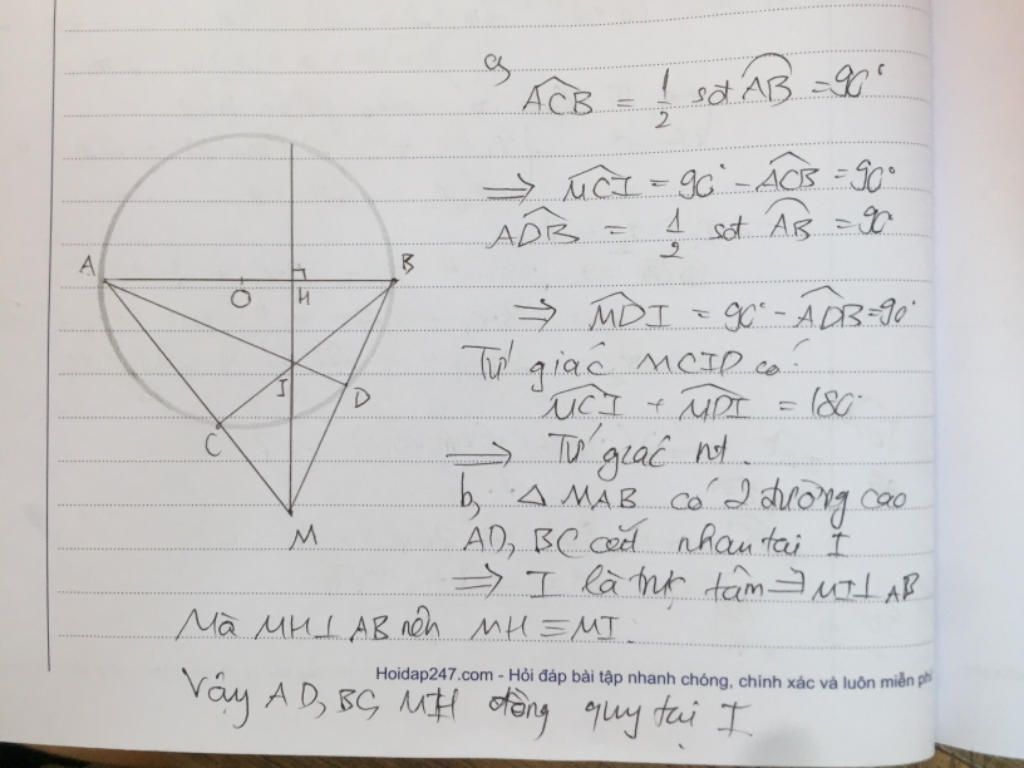 a,
ACB = 1/2 sđ AB = 90°
=> MCI = 90° - ACB = 90°
ADB = 1/2 sđ AB = 90°
=> MDI = 90° - ADB = 90°
Tứ giác MCID có:
MCI + MDI = 180°
=> Tứ giác nt.
b, Δ MAB có 2 đường cao
AD, BC cắt nhau tại I
=> I là trực tâm => MI ⊥ AB
Mà MH ⊥ AB nên MH ≡ MI.
Hoidap247.com - Hỏi đáp bài tập nhanh chóng, chính xác và luôn miễn phí
Vậy AD, BC, MH đồng quy tại I
A
O
H
B
I
D
C
M